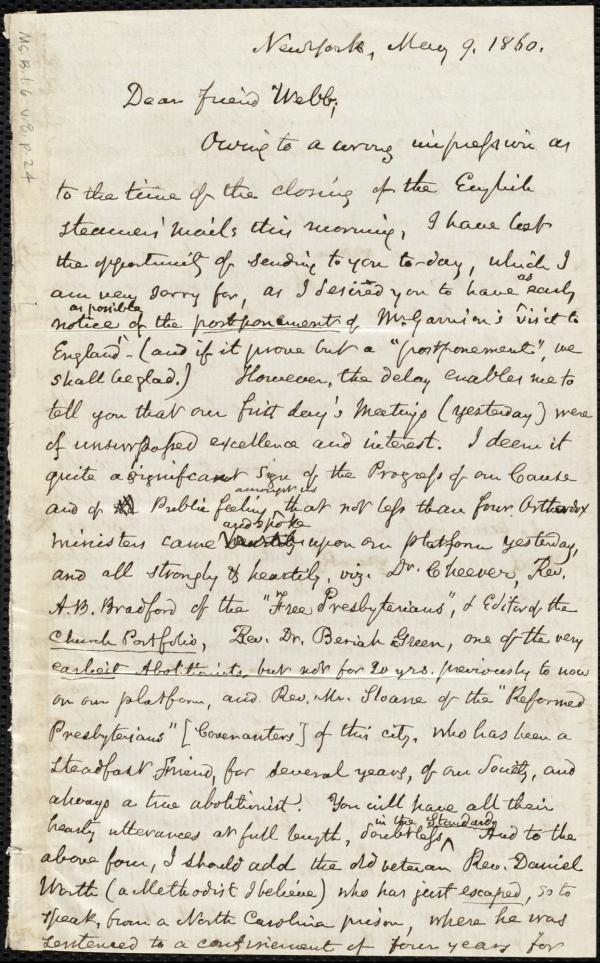 New York, May 9. 1860.
Dear friend Webb,
Owing to a wrong impression as
to the time of the closing of the English
steamers' mails this morning, I have lost
the opportunity of sending to you to-day, which I
am very sorry for, as I desired you to have as early
as possible
notice of the postponement of Mr. Garrison's visit to
England - (and if it prove but a "postponement", we
shall be glad.) However, the delay enables me to
tell you that our first day's Meetings (yesterday) were
of unsurpassed excellence and interest. I deem it
quite a significant sign of the Progress of our Cause
and of Public feeling amongst us that not less than four Orthodox
ministers came and spoke upon our platform yesterday,
and all strongly & heartily, viz. Dr. Cheever, Rev.
A.B. Bradford of the "Free Presbyterians", & Editor of the
Church Portfolio, Rev. Dr. Beriah Green, one of the very
earliest Abolitionists, but not for 20 yrs. previously to now
on our platform, and Rev. Mr. Sloane of the "Reformed
Presbyterians" [Covenanters] of this city, who has been a
steadfast friend, for several years, of our Society, and
always a true abolitionist. You will have all their
hearty utterances at full length, in the Standard, doubtless. And to the
above four, I should add the old veteran Rev. Daniel
Worth (a Methodist I believe) who has just escaped, so to
speak, from a North Carolina prison, where he was
sentenced to a confinement of four years for
MS.B.1.6 v.8 p.24